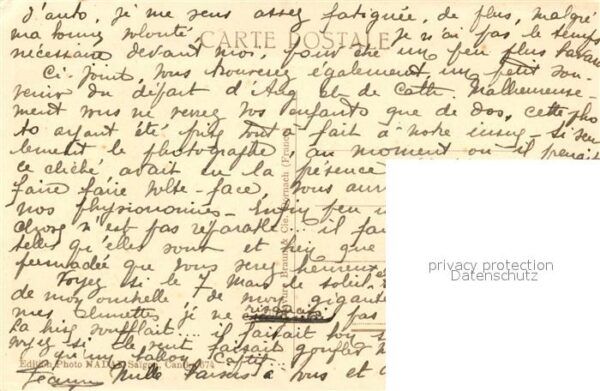 d'auto, je me sens assez fatiguée, de plus, malgré
ma bonne volonté Je n'ai pas le temps
CARTE POSTALE
nécessaire devant moi, pour être un peu plus bavarde
Ci-joint, vous trouverez également un petit sou-
venir du départ d'Ang et de Cath. Malheureuse-
ment vous ne verrez vos enfants que de dos, cette pho
to ayant été prise tout à fait à notre insu - Si seu
lement le photographe, au moment où il prenait
ce cliché avait eu la présence
faire faire volte-face, vous aur
nos physionomies - Enfin peu i
chose n'est pas réparable... il fau
telles qu'elles sont et rien que
persuadée que vous serez heureux
Voyez si le 7 Mars le soleil
de mon ombrelle, de mon gigante
mes lunettes je ne pas
La bise soufflait... il faisait bon
voyez si le vent faisait gonfler
qu'un ballon Captif...
Jeanne Mille baisers à vous et
Braun & Cie, Dornach (France)
Edition Photo NADAL Saigon, Cant 374
privacy protection
Datenschutz